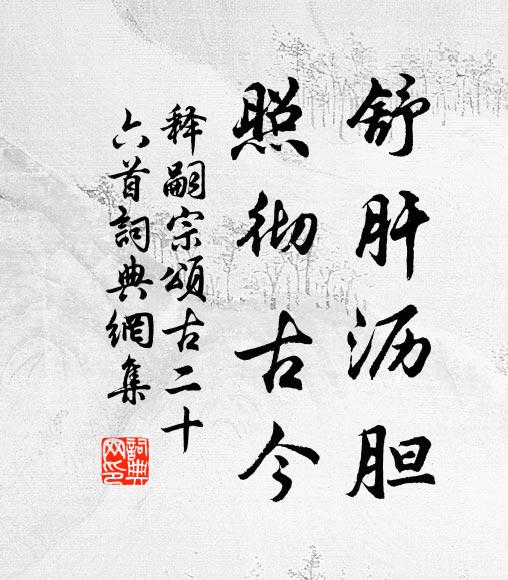 舒肝沥胆
照彻古今
释嗣宗颂古二十
六首詞典網集
詞典網印